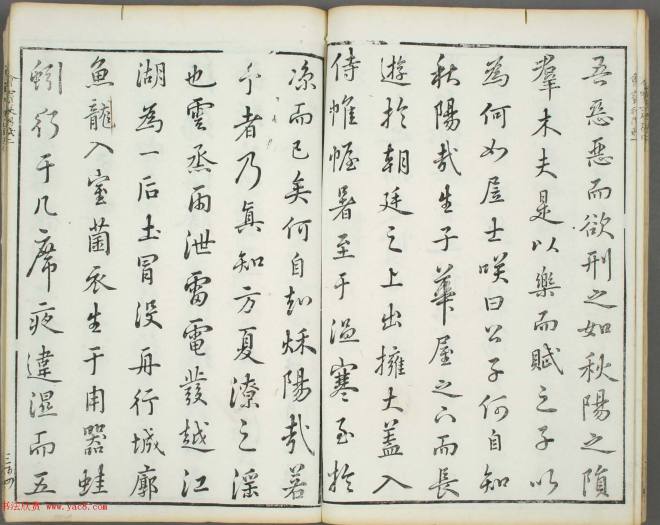 吾惡惡而欲刑之如秋陽之隕
羣木夫是以樂而賦之子以
為何如居士咲曰公子何自知
秋陽哉生子華屋之下而長
遊於朝廷之上出擁大蓋入
侍帷幄暑至于溫寒至於
涼而已矣何自知秌陽哉若
予者乃真知方夏潦之淫
也雲烝雨泄雷電發越江
湖為一后土冒沒舟行城郭
魚龍入室菌衣生于用器蛙
蚓行于几席夜違濕而五
三百四
书法欣赏 www.yac8.com